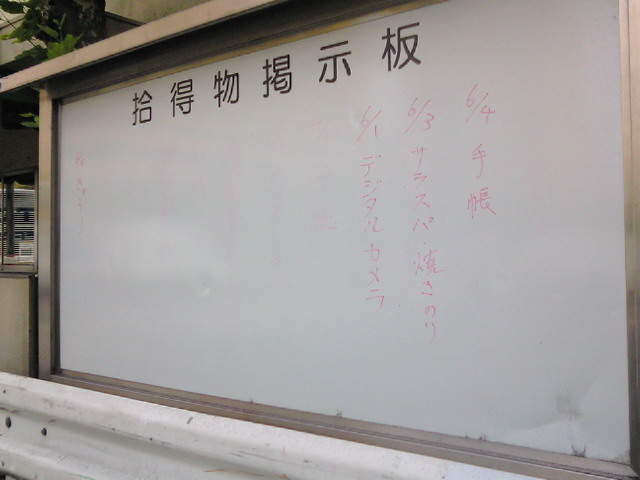 拾得物掲示板
6/4 手帳
6/3 サラスパ・焼きのり
6/1 デジタルカメラ